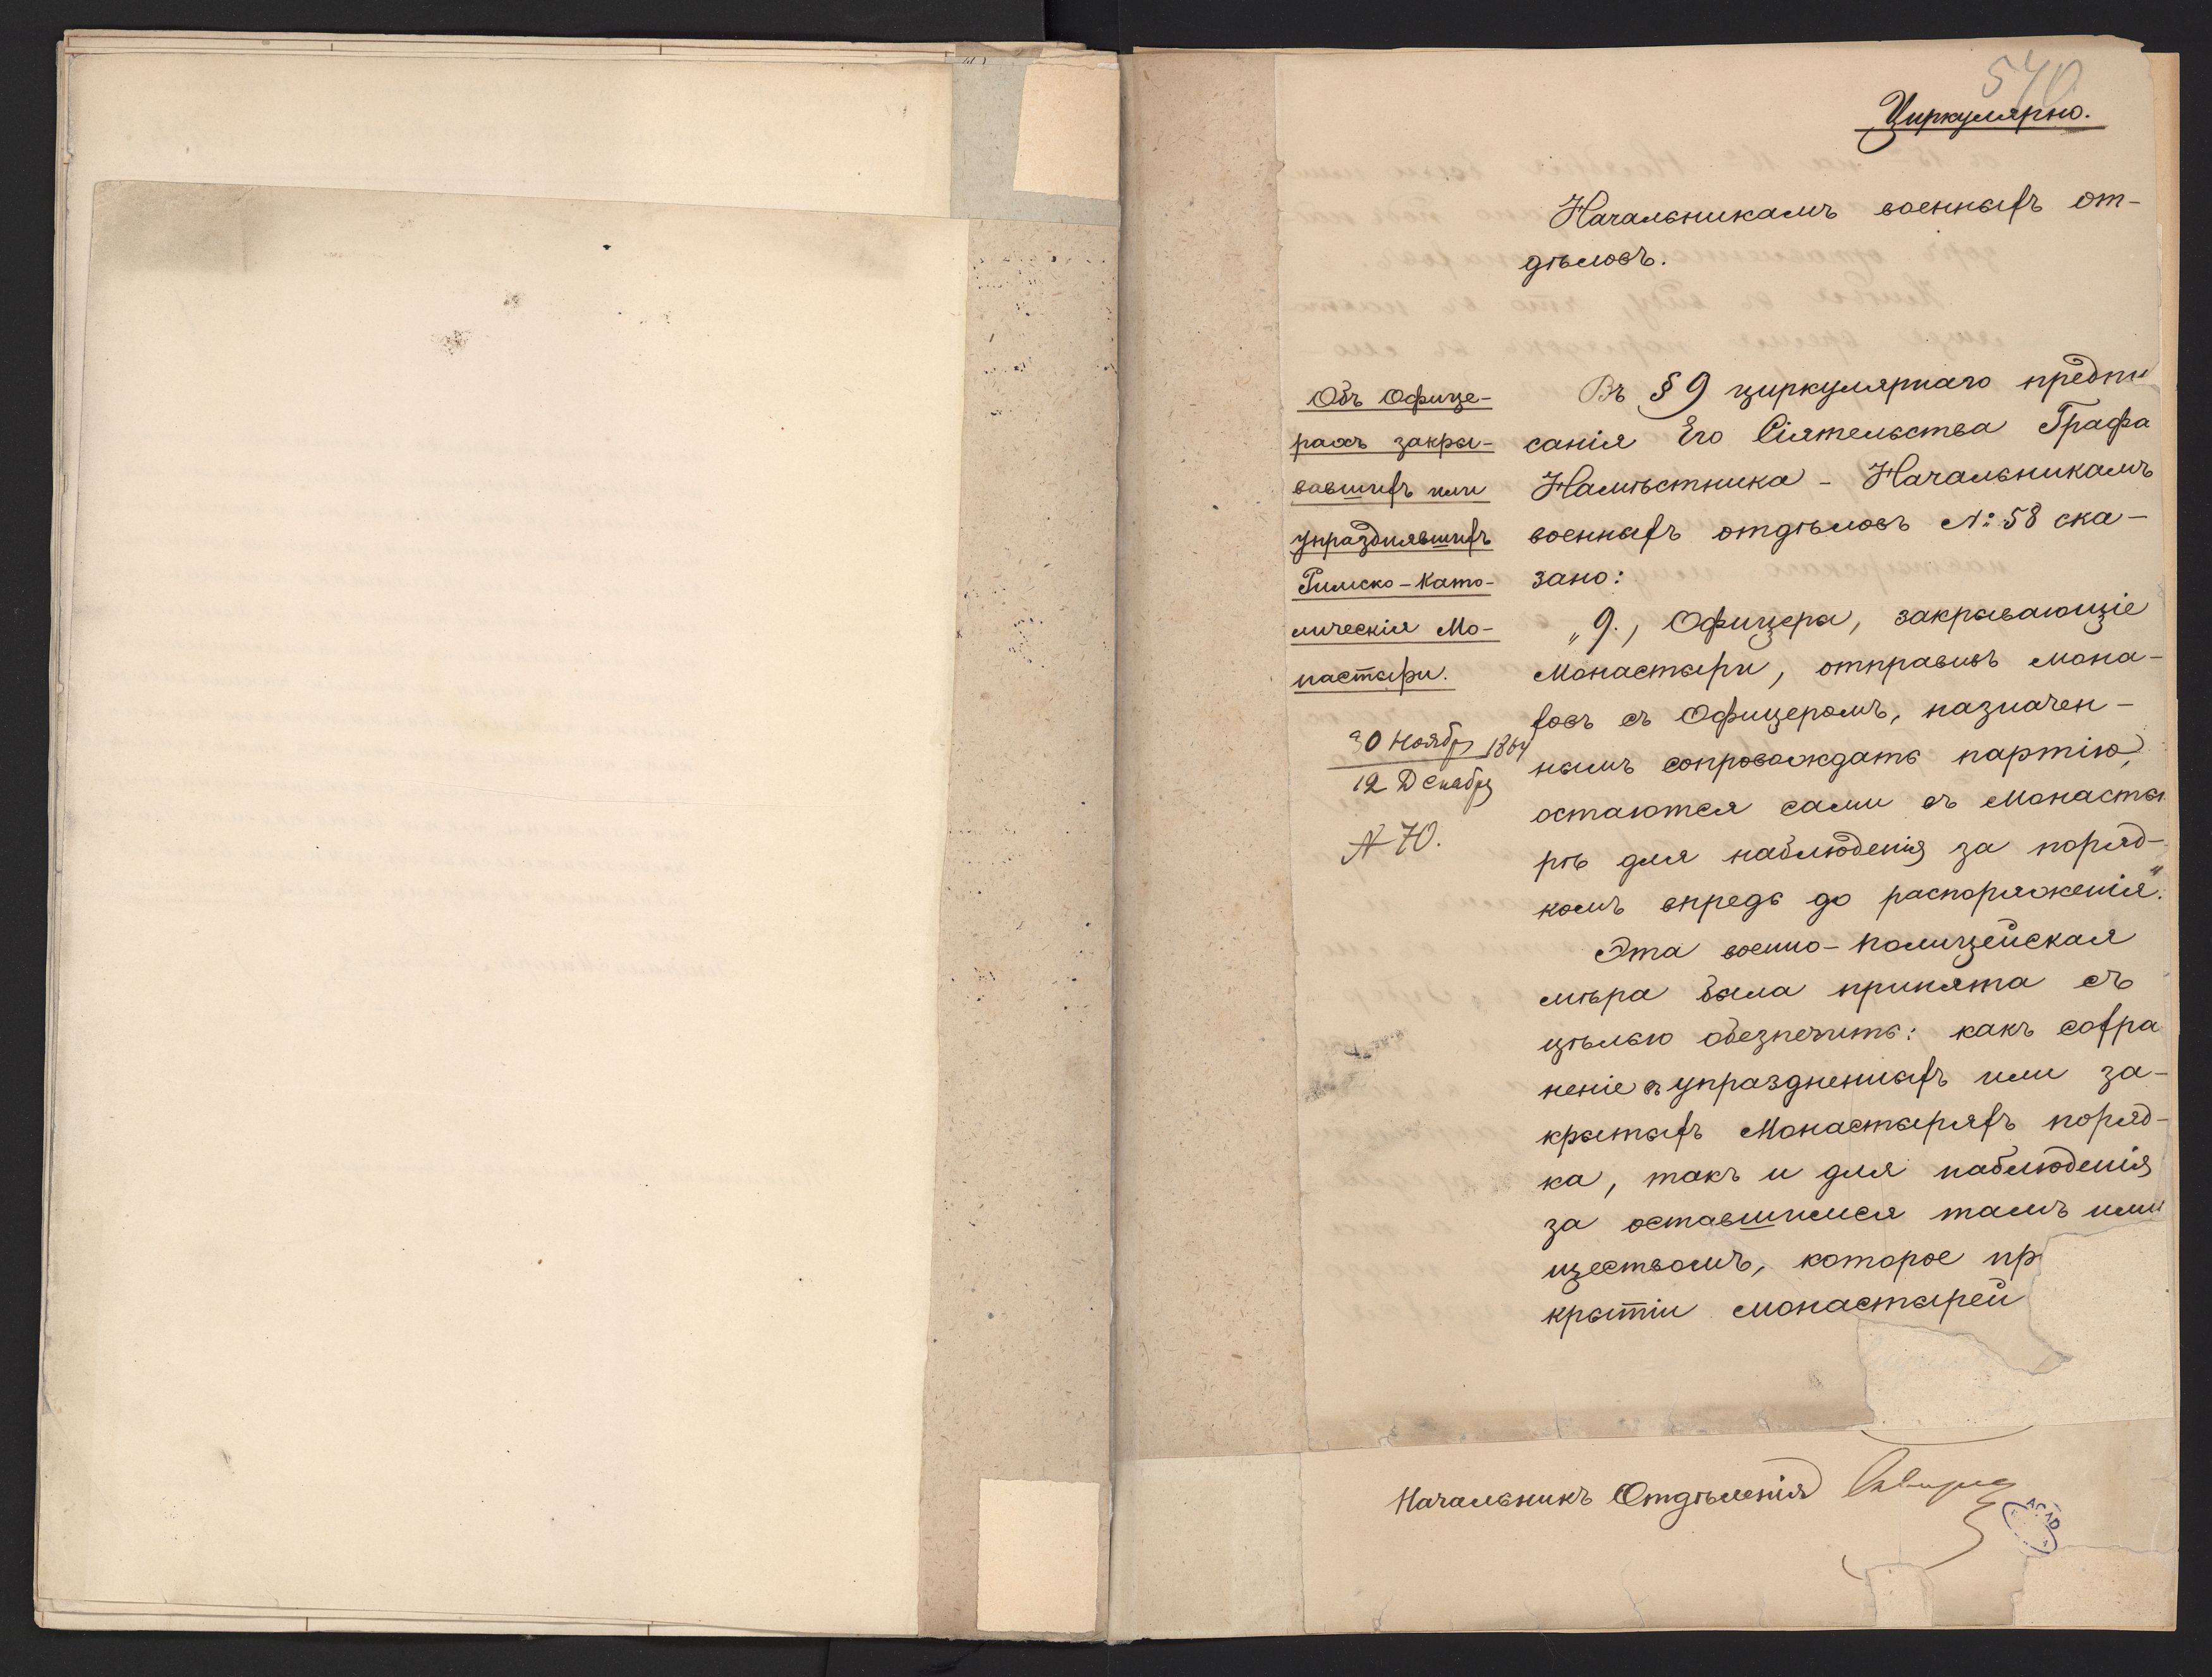 540
Циркулярно.
Начальникамъ военныхъ от-
дѣловъ.
Объ Офице-
рахъ закры-
вавшихъ или
упраздлявшихъ
Римско-Като-
лическія Мо-
настыри.
30 Ноябр 1864
12 Декабря
№ 70.
Въ § 9 циркулярнаго предпи
санія Его Сіятельства Графа
Намѣстника - Начальникамъ
военныхъ отдѣловъ №: 58 ска-
зано:
„9., Офицеры, закрывающіе
Монастыри, отправивъ мона-
ховъ съ Офицеромъ, назначен-
нымъ сопровождать партію,
остаются сами въ Монасты
рѣ для наблюденія за поряд-
комъ впредь до распоряженія".
Эта военно-полицейская
мѣра была принята съ
цѣлью обезпечить: какъ сохра
неніе въ упраздненныхъ или за-
крытыхъ Монастыряхъ поряд-
ка, такъ и для наблюденія
за оставшимся тамъ иму
ществомъ, которое пр
крытіи монастырей
Начальникъ Отдѣленія
AGAD